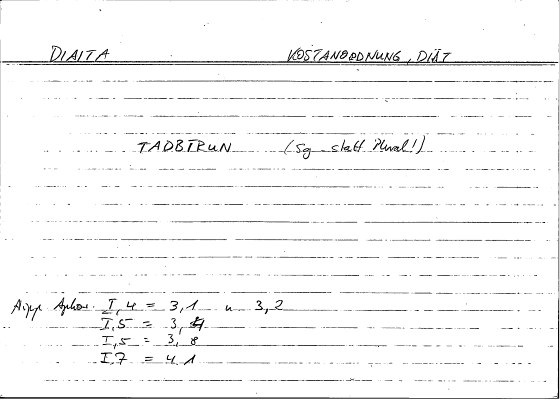 DIAITA KOSTANORDNUNG, DIÄT
TADBIRUN (Sg. statt Plural!)
Hipp. Aphor. I,4 = 3,1 u 3,2
I,5 = 3,4
I,5 = 3,8
I,7 = 4,1